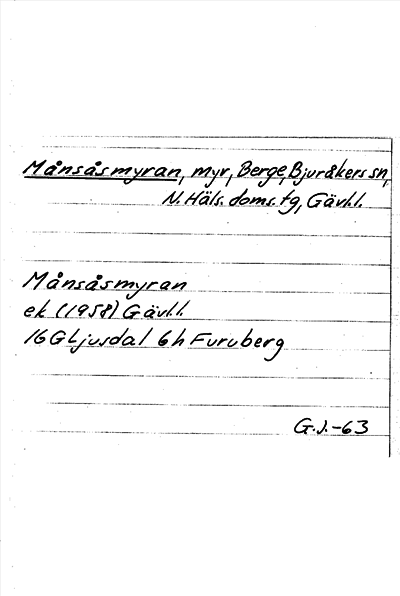 Månsåsmyran, myr, Berge, Bjuråkers sn,
N. Häls. doms. tg, Gävl.l.
Månsåsmyran
ek (1958) Gävl.l.
16G Ljusdal 6h Furuberg
G.J.-63